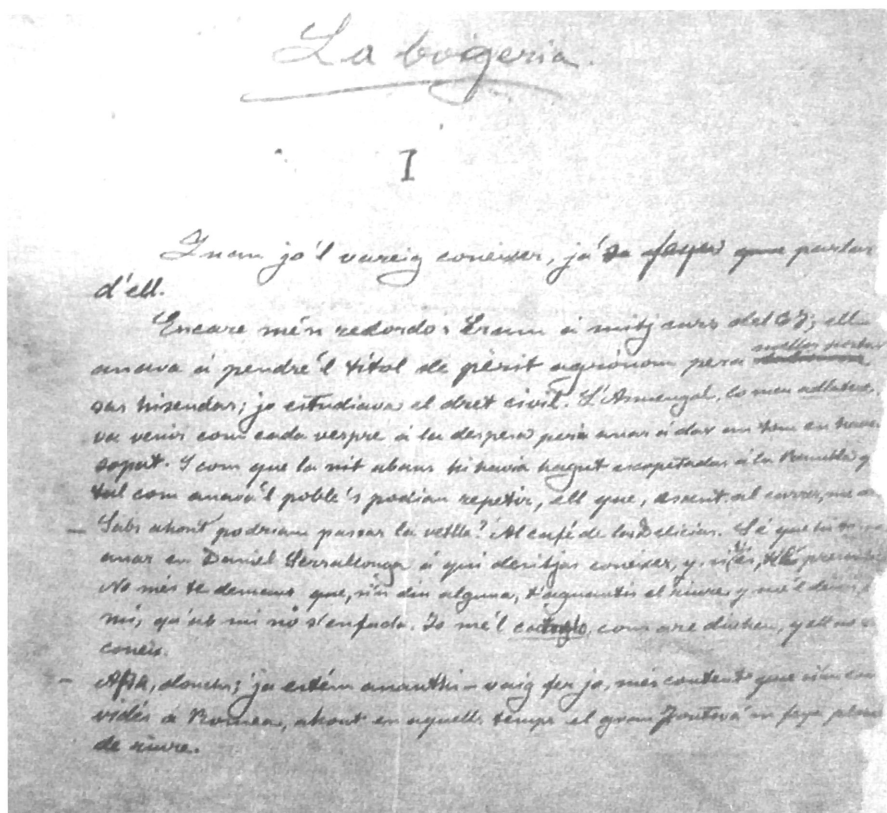 La bogeria.
I
Quan jo'l vareig coneixer, ja's feya parlar
d'ell.
Encare me'n recordo: Eram á mitj curs del 67; ell
anava á pendre'l títol de pèrit agrónom pera millor portar
sas hisendas; jo estudiava el dret civil. L'Armengol, lo meu adlatere,
va venir com cada vespre á la despesa pera anar á dar un tom en havent
sopat. Y com que la nit abans hi havia hagut escopetadas á la Rambla y
tal com anava'l poble's podian repetir, ell que, eixint al carrer, me
— Sabs ahont podriam passar la vetlla? Al café de las Delicias. Sé que hi
anar en Daniel Serrallonga á qui desitjas coneixer, y, si
No més te demano que, si'n diu alguna, t'aguantis el riure, y me'l deixis á
mi, qu'ab mi no s'enfada. Jo me'l, com are diuhen, y ell no'm
coneix.
— Apa, donchs; ja estém ananthi — vaig fer jo, més content que si'm con
vidés á Romea, ahont en aquells temps el gran Fontová'm feya plorar
de riure.